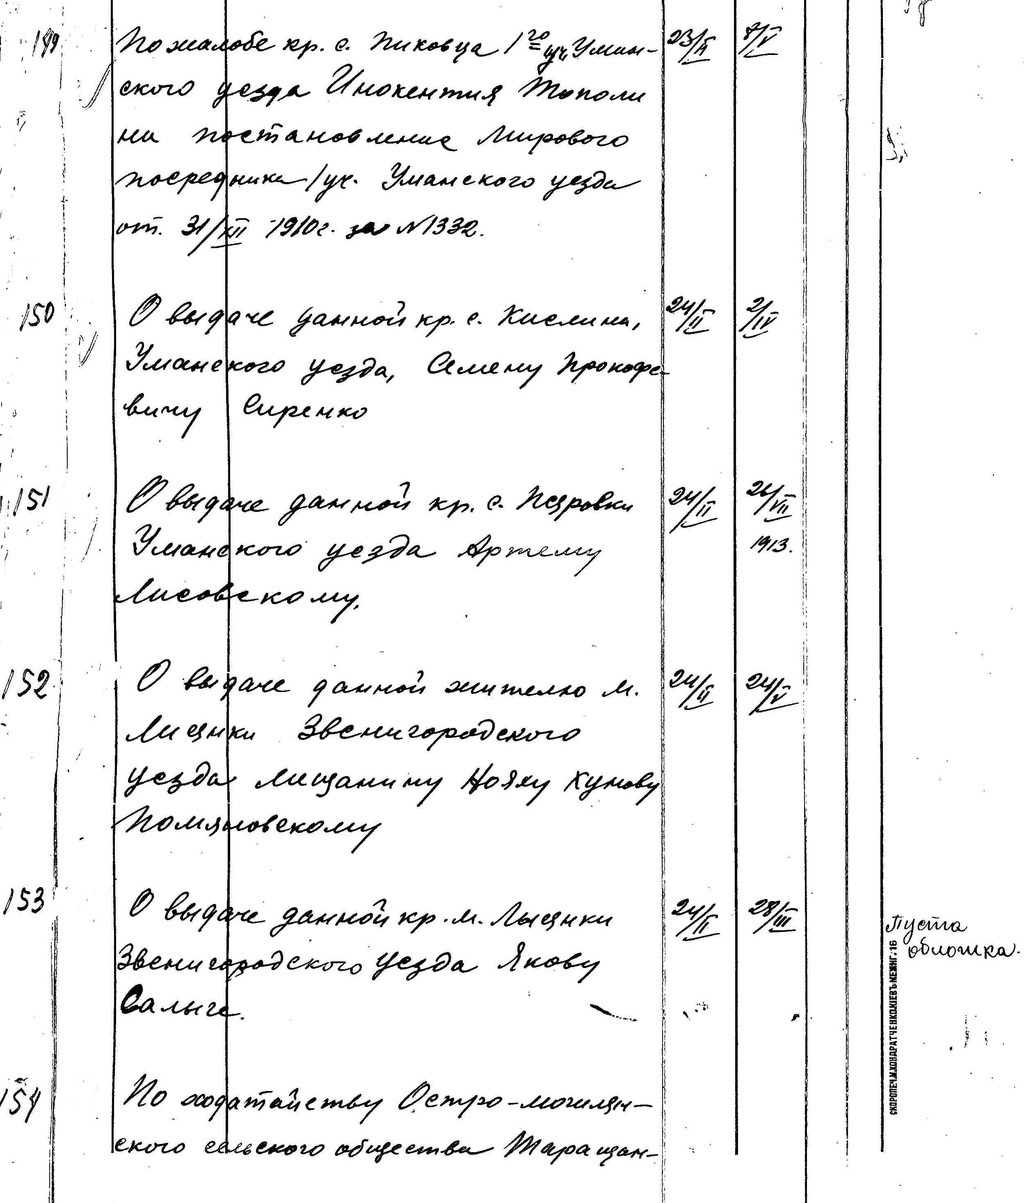 149 По жалобе кр. с. Пиковца 1го уч. Уман- 23/II 7/V
ского уезда Инокентия Тополи
на постановление Мирового
посредника 1 уч. Уманского уезда
от. 31/XII 1910 г. за № 1332.
150 О выдаче данной кр. с. Кислина, 24/II 2/IV
Уманского уезда, Семену Прокофе-
вичу Сиренко
151 О выдаче данной кр. с. Перовки 24/II 26/VII
Уманского уезда Артему 1913.
Лисовскому.
152 О выдаче данной жителю м. 24/II 24/V
Лисянки Звенигородского
уезда мещанину
Помяновскому
153 О выдаче данной кр. м. Лысянки 24/II 28/III Пуста
Звенигородского уезда Якову обложка.
Салыге.
154 По ходатайству Остро-могилян-
ского сельского общества Таращан-
СКОРОПЕЧ. И. КОНДРАТЧЕНКО КІЕВЪ МЕЖИГ. 16